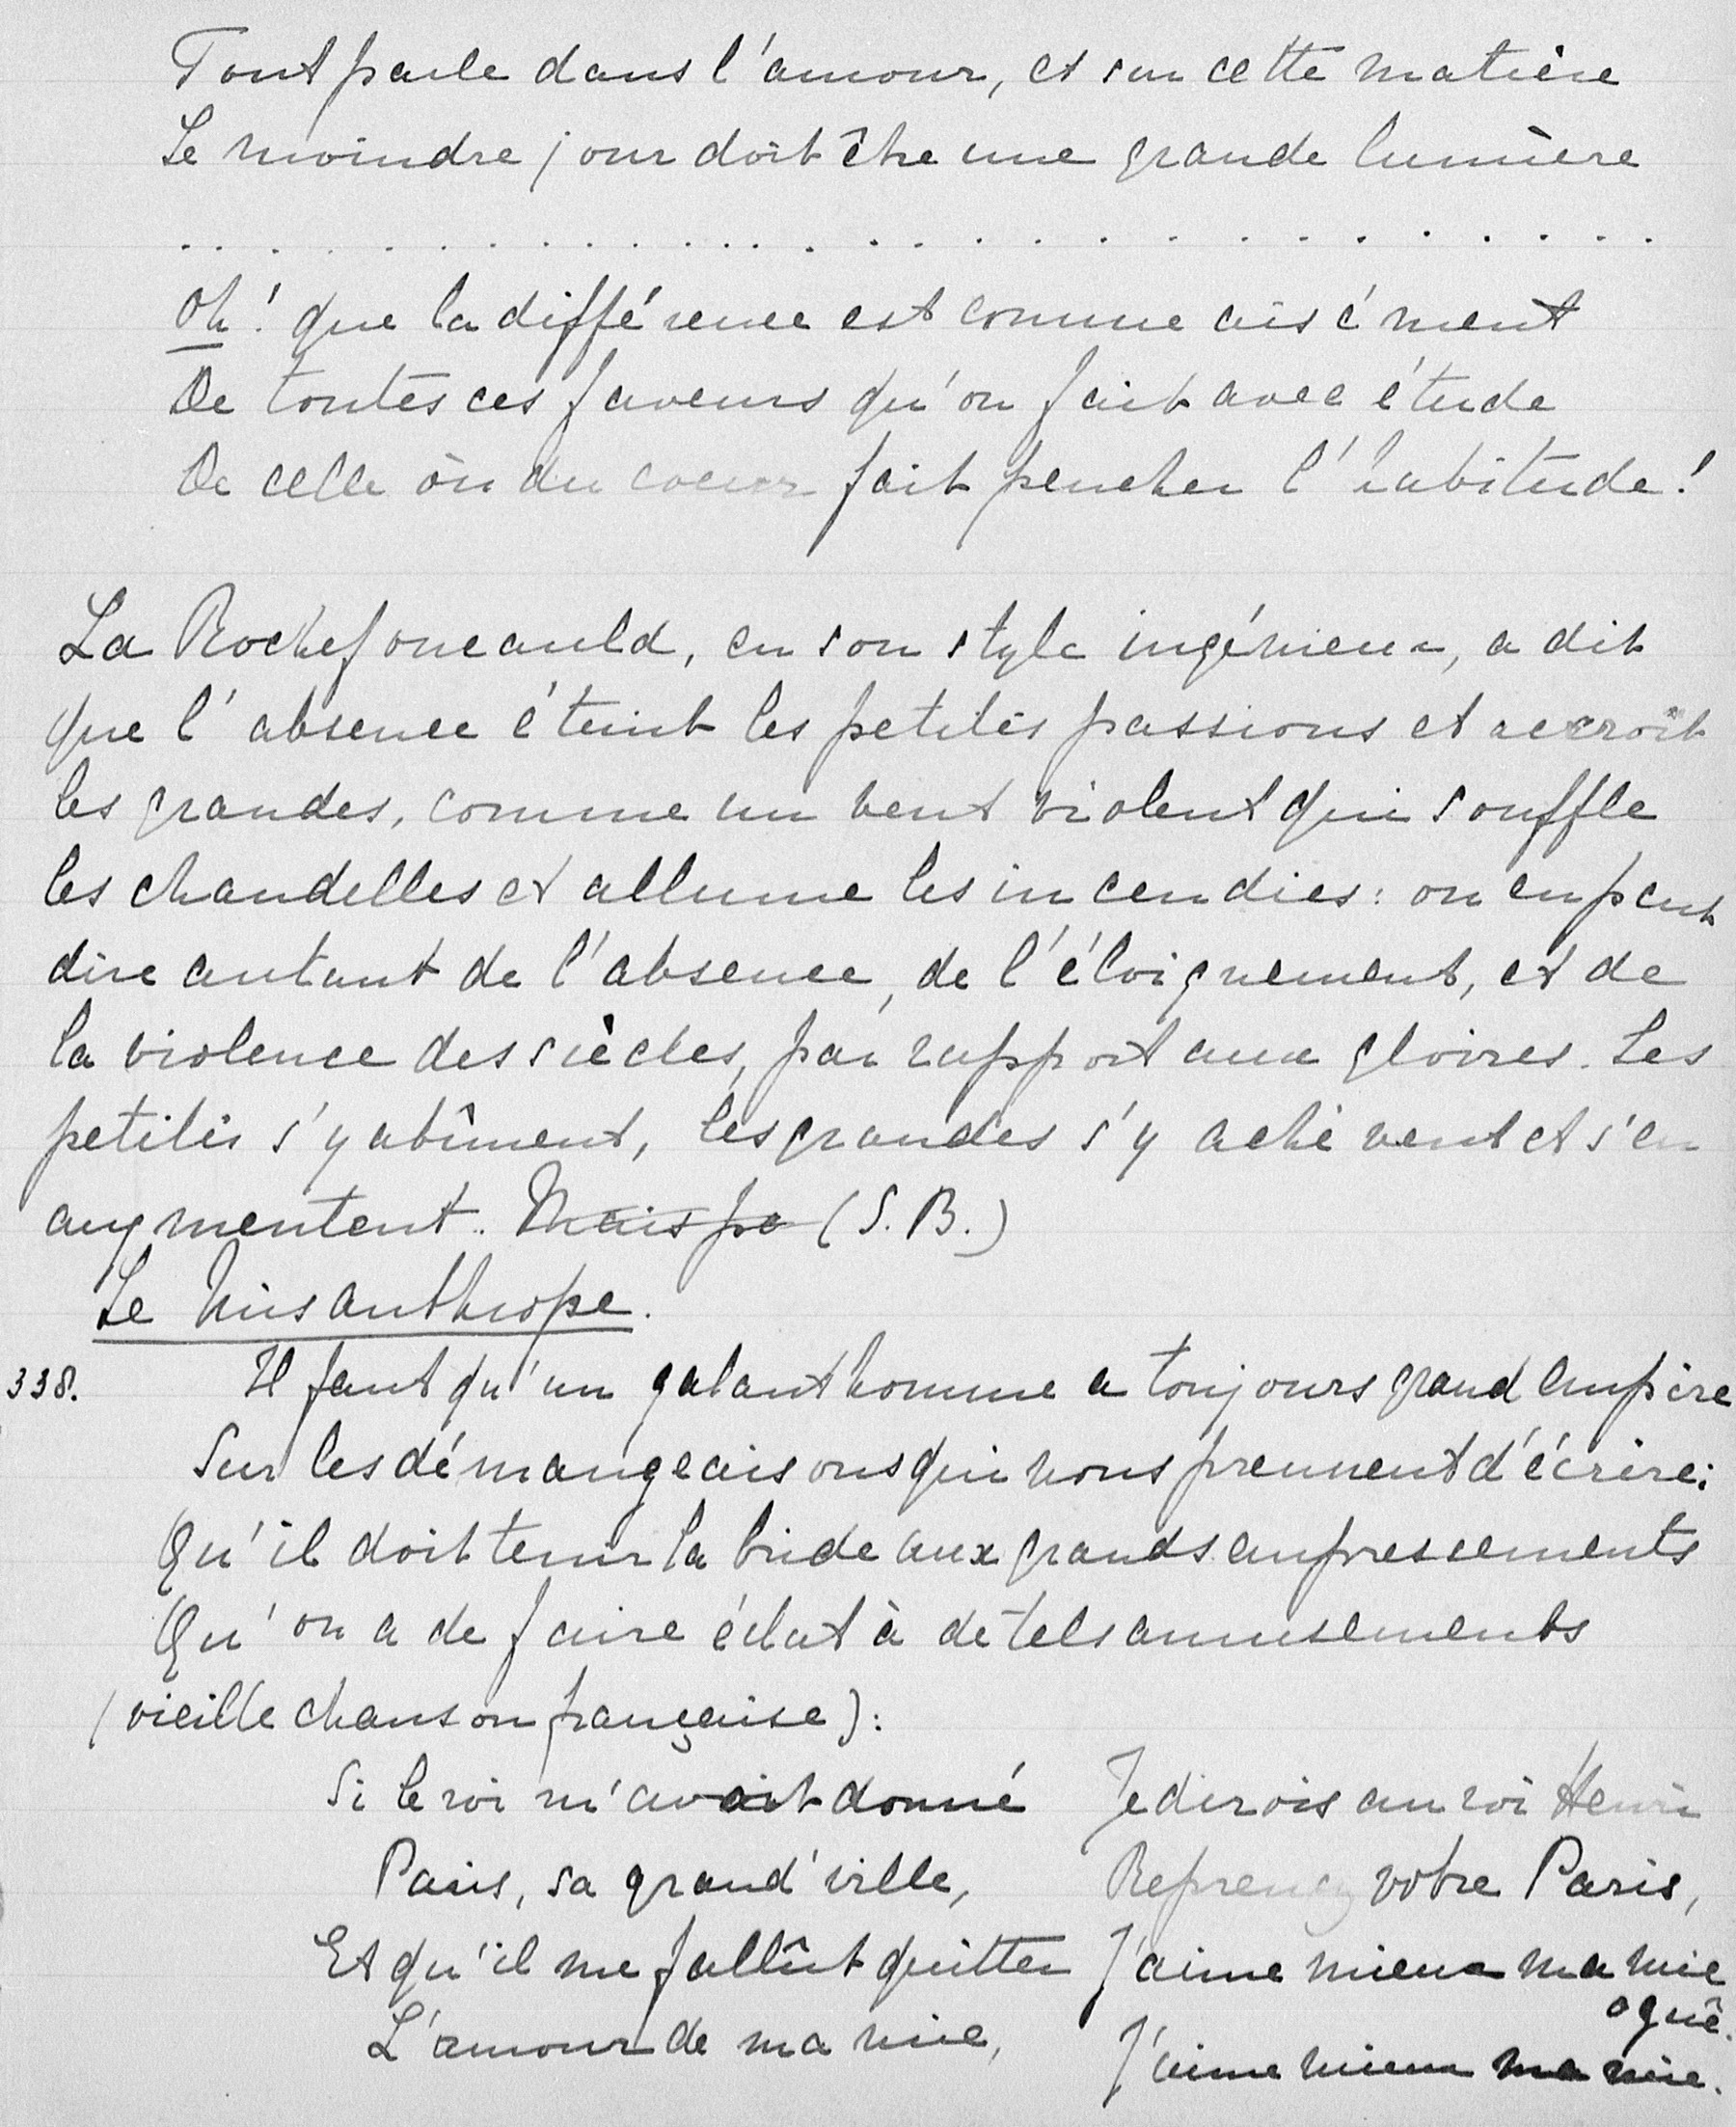 Tout parle dans l'amour, et sur cette matière
Le moindre jour doit être une grande lumière
. . . . . . . . . . . . . . . . . . . . . . . . . .
Oh! que la différence est connue aisément
De toutes ces faveurs qu'on fait avec étude
De celle où du coeur fait pencher l'habitude!
La Rochefoucauld, en son style ingénieux, a dit
que l'absence éteint les petites passions et accroît
les grandes, comme un vent violent qui souffle
les chandelles et allume les incendies: on en peut
dire autant de l'absence, de l'éloignement, et de
la violence des siècles, par rapport aux gloires. Les
petites s'y abîment, les grandes s'y achèvent et s'en
augmentent. Mais pe (S. B.)
Le Misanthrope.
338. Il faut qu'un galant homme a toujours grand empire
Sur les démangeaisons qui nous prennent d'écrire:
Qu'il doit tenir la bride aux grands empressements
Qu'on a de faire éclat à de tels amusements
(vieille chanson française):
Si le roi m'avait donné
Paris, sa grand'ville,
Et qu'il me fallût quitter
L'amour de ma mie,
Je dirois au roi Henri
Reprenez votre Paris,
J'aime mieux ma mie
o gué.
J'aime mieux ma mie.